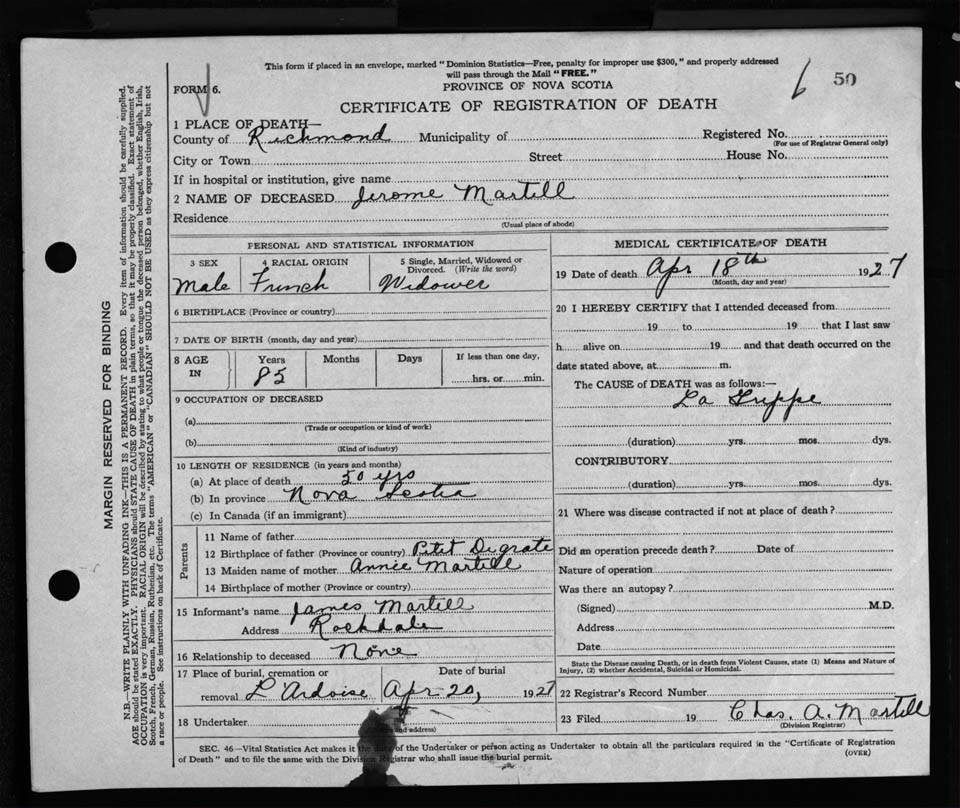 This form if placed in an envelope, marked "Dominion Statistics—Free, penalty for improper use $300," and properly addressed
will pass through the Mail "FREE."
FORM 6.
PROVINCE OF NOVA SCOTIA
50
CERTIFICATE OF REGISTRATION OF DEATH
1 PLACE OF DEATH—
County of Richmond Municipality of Registered No.
(For use of Registrar General only)
City or Town Street House No.
If in hospital or institution, give name
2 NAME OF DECEASED Jerome Martell
Residence
(Usual place of abode)
PERSONAL AND STATISTICAL INFORMATION
3 SEX 4 RACIAL ORIGIN 5 Single, Married, Widowed or
Divorced. (Write the word)
Male French Widower
6 BIRTHPLACE (Province or country)
7 DATE OF BIRTH (month, day and year)
8 AGE IN Years Months Days If less than one day,
85 hrs. or min.
9 OCCUPATION OF DECEASED
(a)
(Trade or occupation or kind of work)
(b)
(Kind of industry)
10 LENGTH OF RESIDENCE (in years and months)
(a) At place of death 50 yrs
(b) In province Nova Scotia
(c) In Canada (if an immigrant)
Parents
11 Name of father
12 Birthplace of father (Province or country) Petit Degrate
13 Maiden name of mother Annie Martell
14 Birthplace of mother (Province or country)
15 Informant's name James Martell
Address Rockdale
16 Relationship to deceased None
17 Place of burial, cremation or Date of burial
removal L'Ardoise Apr 20, 1927
18 Undertaker
(Name and address)
MEDICAL CERTIFICATE OF DEATH
19 Date of death Apr 18th 1927
(Month, day and year)
20 I HEREBY CERTIFY that I attended deceased from
19 to 19 that I last saw
h alive on 19 and that death occurred on the
date stated above, at m.
The CAUSE of DEATH was as follows:—
La Grippe
(duration) yrs. mos. dys.
CONTRIBUTORY
(duration) yrs. mos. dys.
21 Where was disease contracted if not at place of death?
Did an operation precede death? Date of
Nature of operation
Was there an autopsy?
(Signed) M.D.
Address
Date
State the Disease causing Death, or in death from Violent Causes, state (1) Means and Nature of
Injury, (2) whether Accidental, Suicidal or Homicidal.
22 Registrar's Record Number
23 Filed 19 Chas. A. Martell
(Division Registrar)
SEC. 46—Vital Statistics Act makes it the duty of the Undertaker or person acting as Undertaker to obtain all the particulars required in the "Certificate of Registration
of Death" and to file the same with the Division Registrar who shall issue the burial permit. (OVER)
MARGIN RESERVED FOR BINDING
N.B.—WRITE PLAINLY WITH UNFADING INK—THIS IS A PERMANENT RECORD. Every item of information should be carefully supplied.
AGE should be stated EXACTLY. PHYSICIANS should STATE CAUSE OF DEATH in plain terms, so that it may be properly classified. Exact statement of
OCCUPATION is very important. RACIAL ORIGIN will be described by stating to what people or tongue the deceased person belonged, whether English, Irish,
Scotch, French, German, Russian, Ruthenian, etc. The terms "AMERICAN" or "CANADIAN" SHOULD NOT BE USED as they express citizenship but not
a race or people. See instructions on back of Certificate.